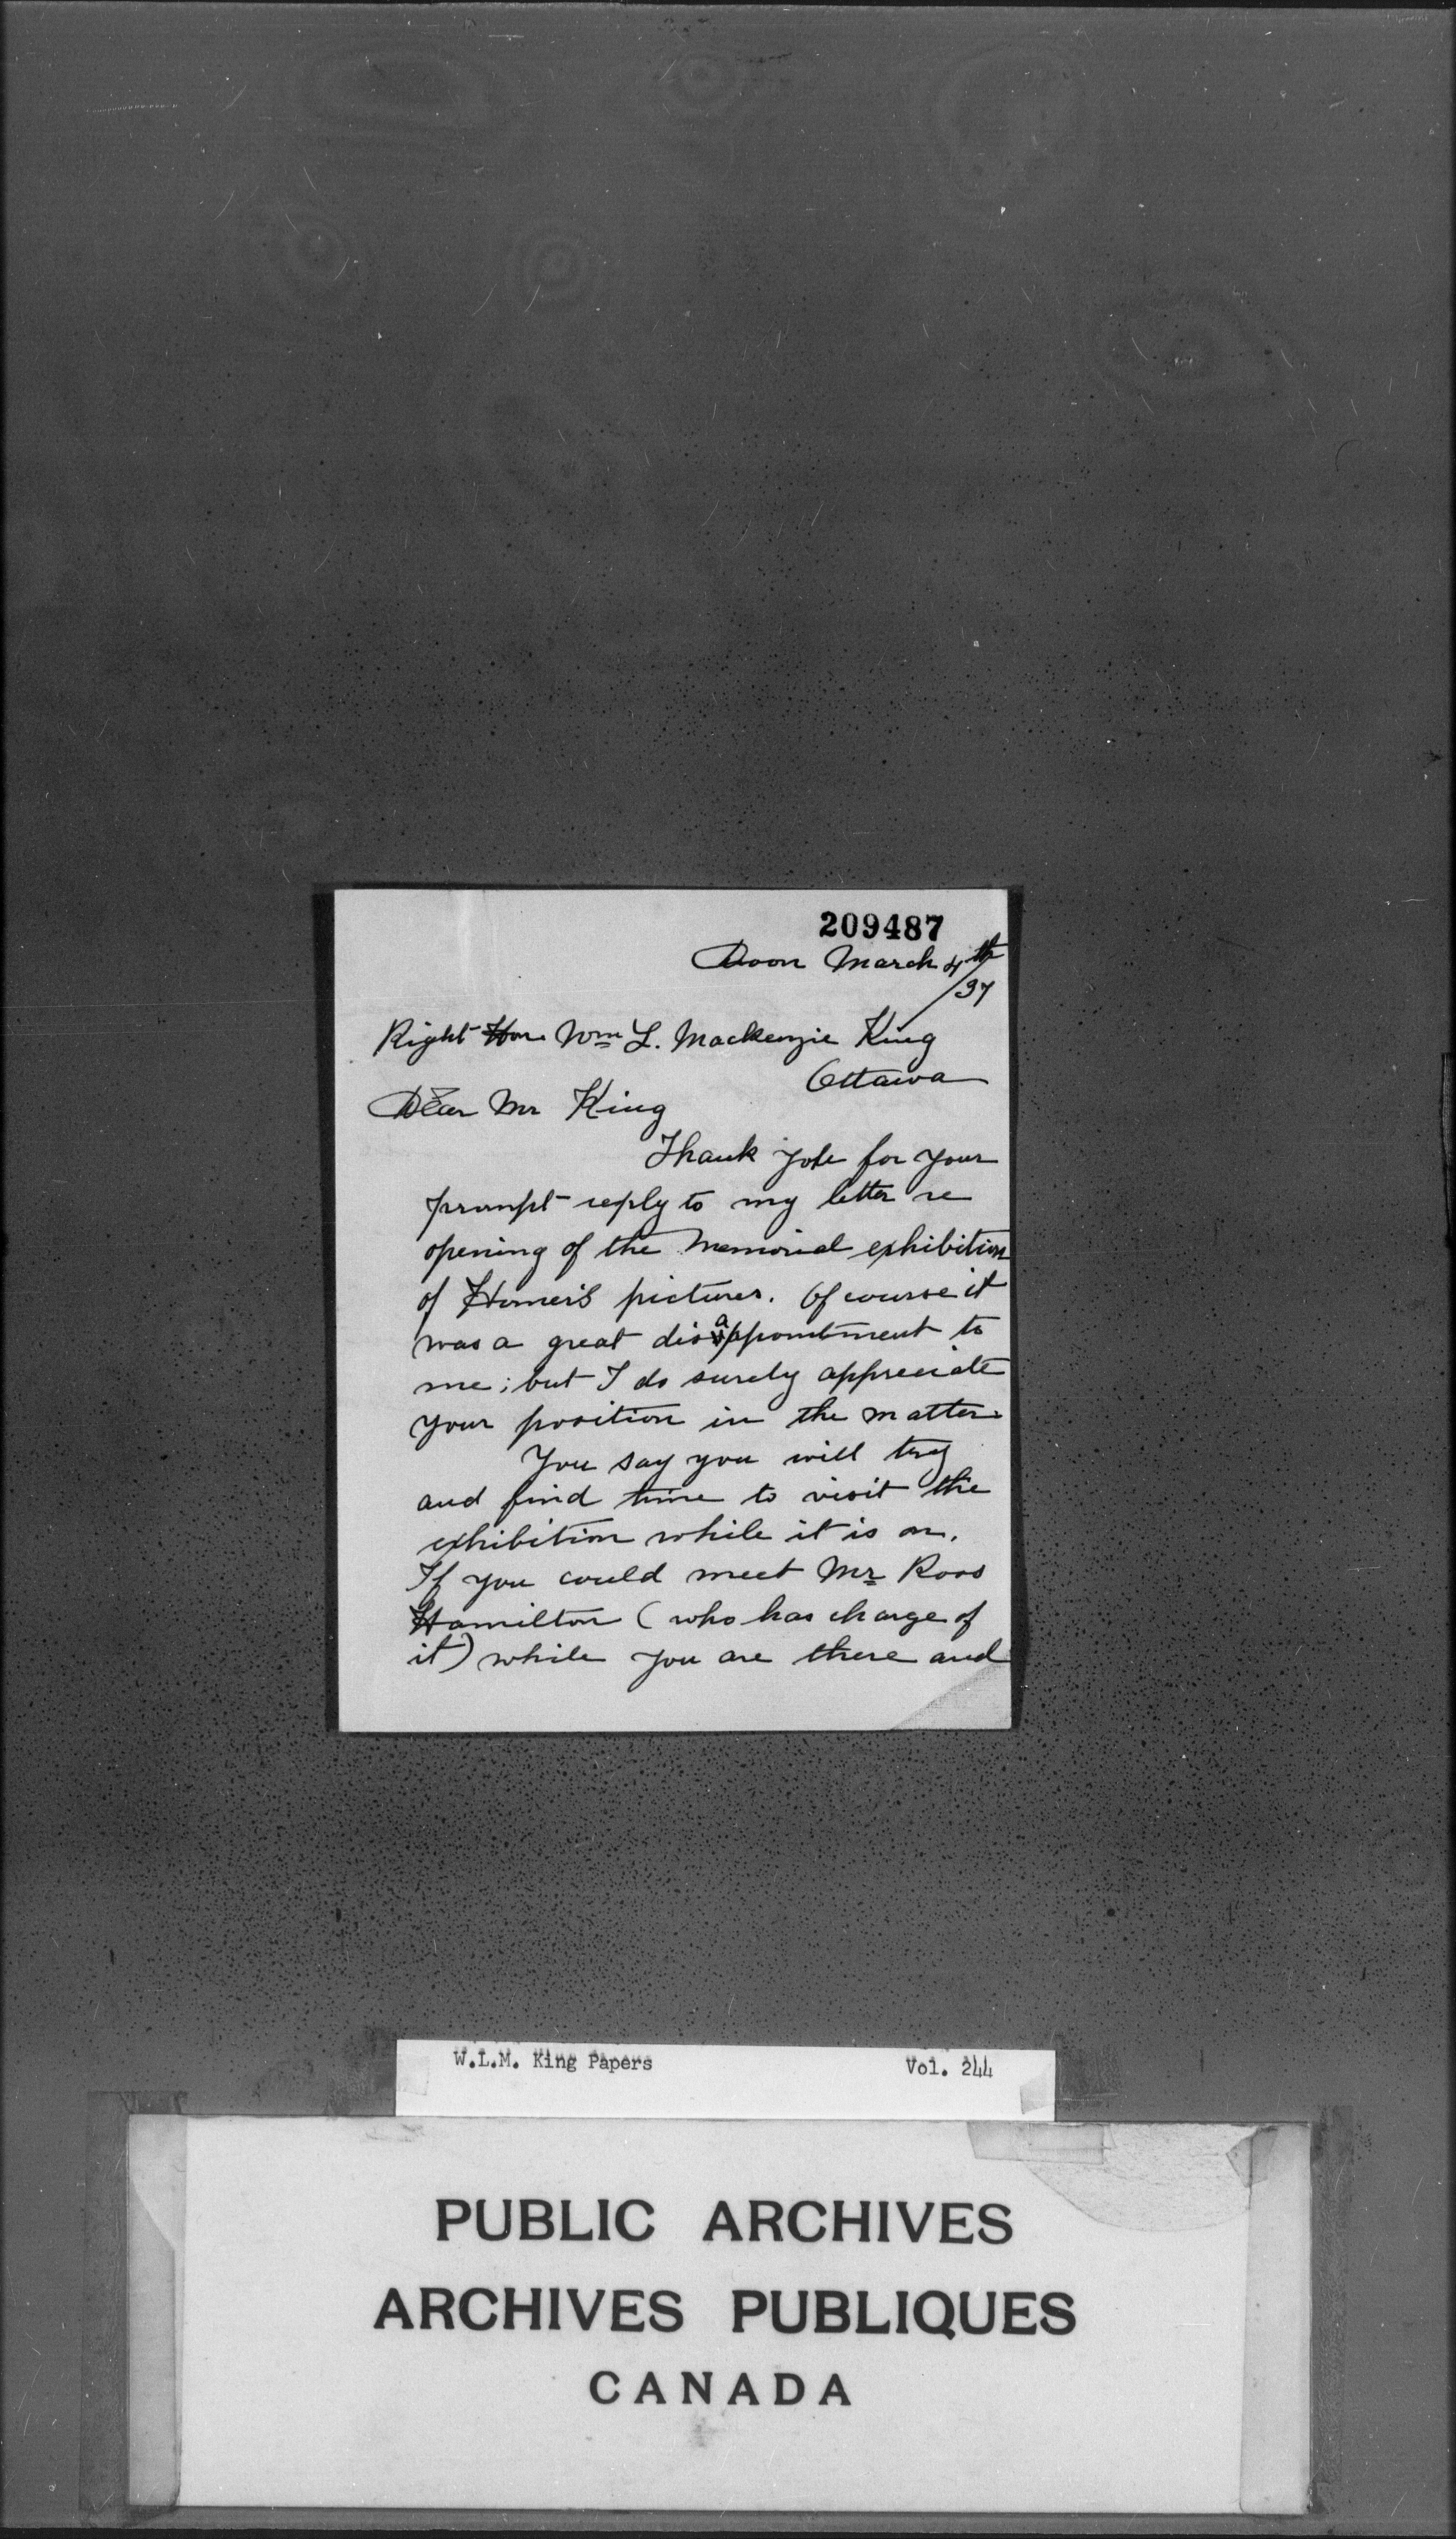 209487
Doon March 4th
/37
Right Hon Wm L. Mackenzie King
Ottawa
Dear Mr King
Thank you for your
prompt reply to my letter re
opening of the Memorial exhibition
of Homer's pictures. Of course it
was a great disappointment to
me; but I do surely appreciate
your position in the matter.
You say you will try
and find time to visit the
exhibition while it is on.
If you could meet Mr Ross
Hamilton (who has charge of
it) while you are there and
W.L.M. King Papers Vol. 244
PUBLIC ARCHIVES
ARCHIVES PUBLIQUES
CANADA